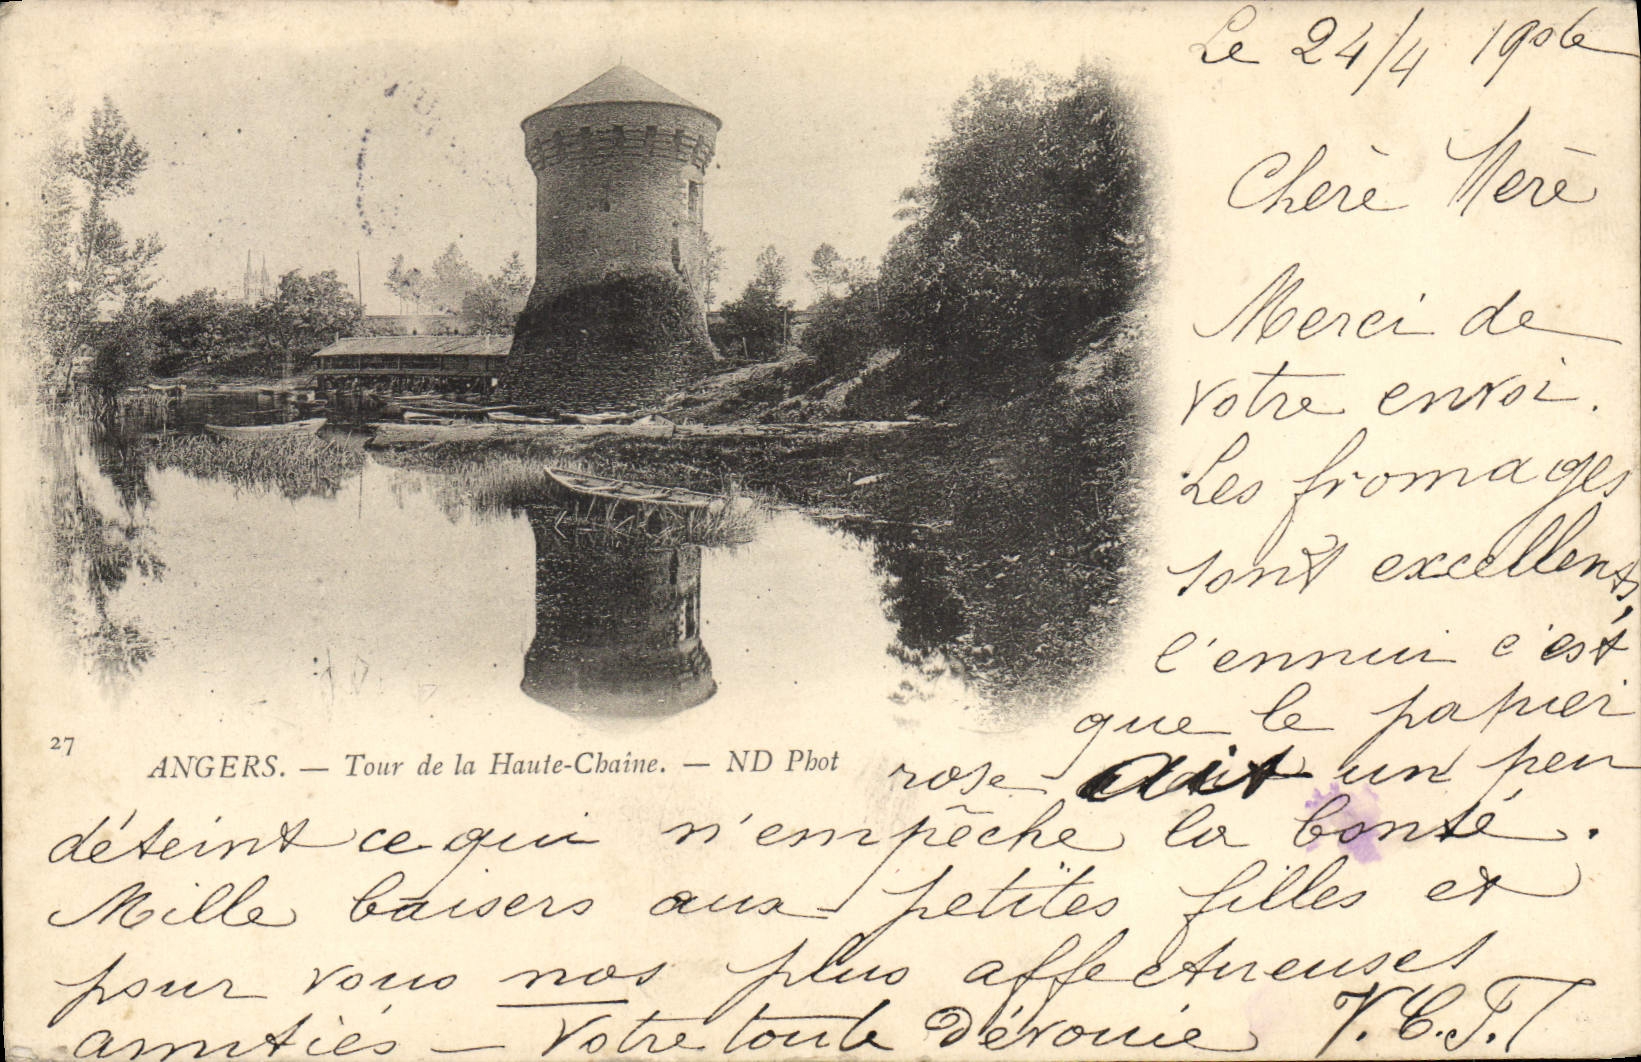 Le 24/4 1906
Chère Mère
Merci de
votre envoi.
Les fromages
sont excellents,
l'ennui c'est
que le papier
rose ait un peu
déteint ce qui n'empêche la bonté.
Mille baisers aux petites filles et
pour vous nos plus affectueuses
amitiés — Votre toute Dévouée V.C.P.
27
ANGERS. — Tour de la Haute-Chaîne. — ND Phot